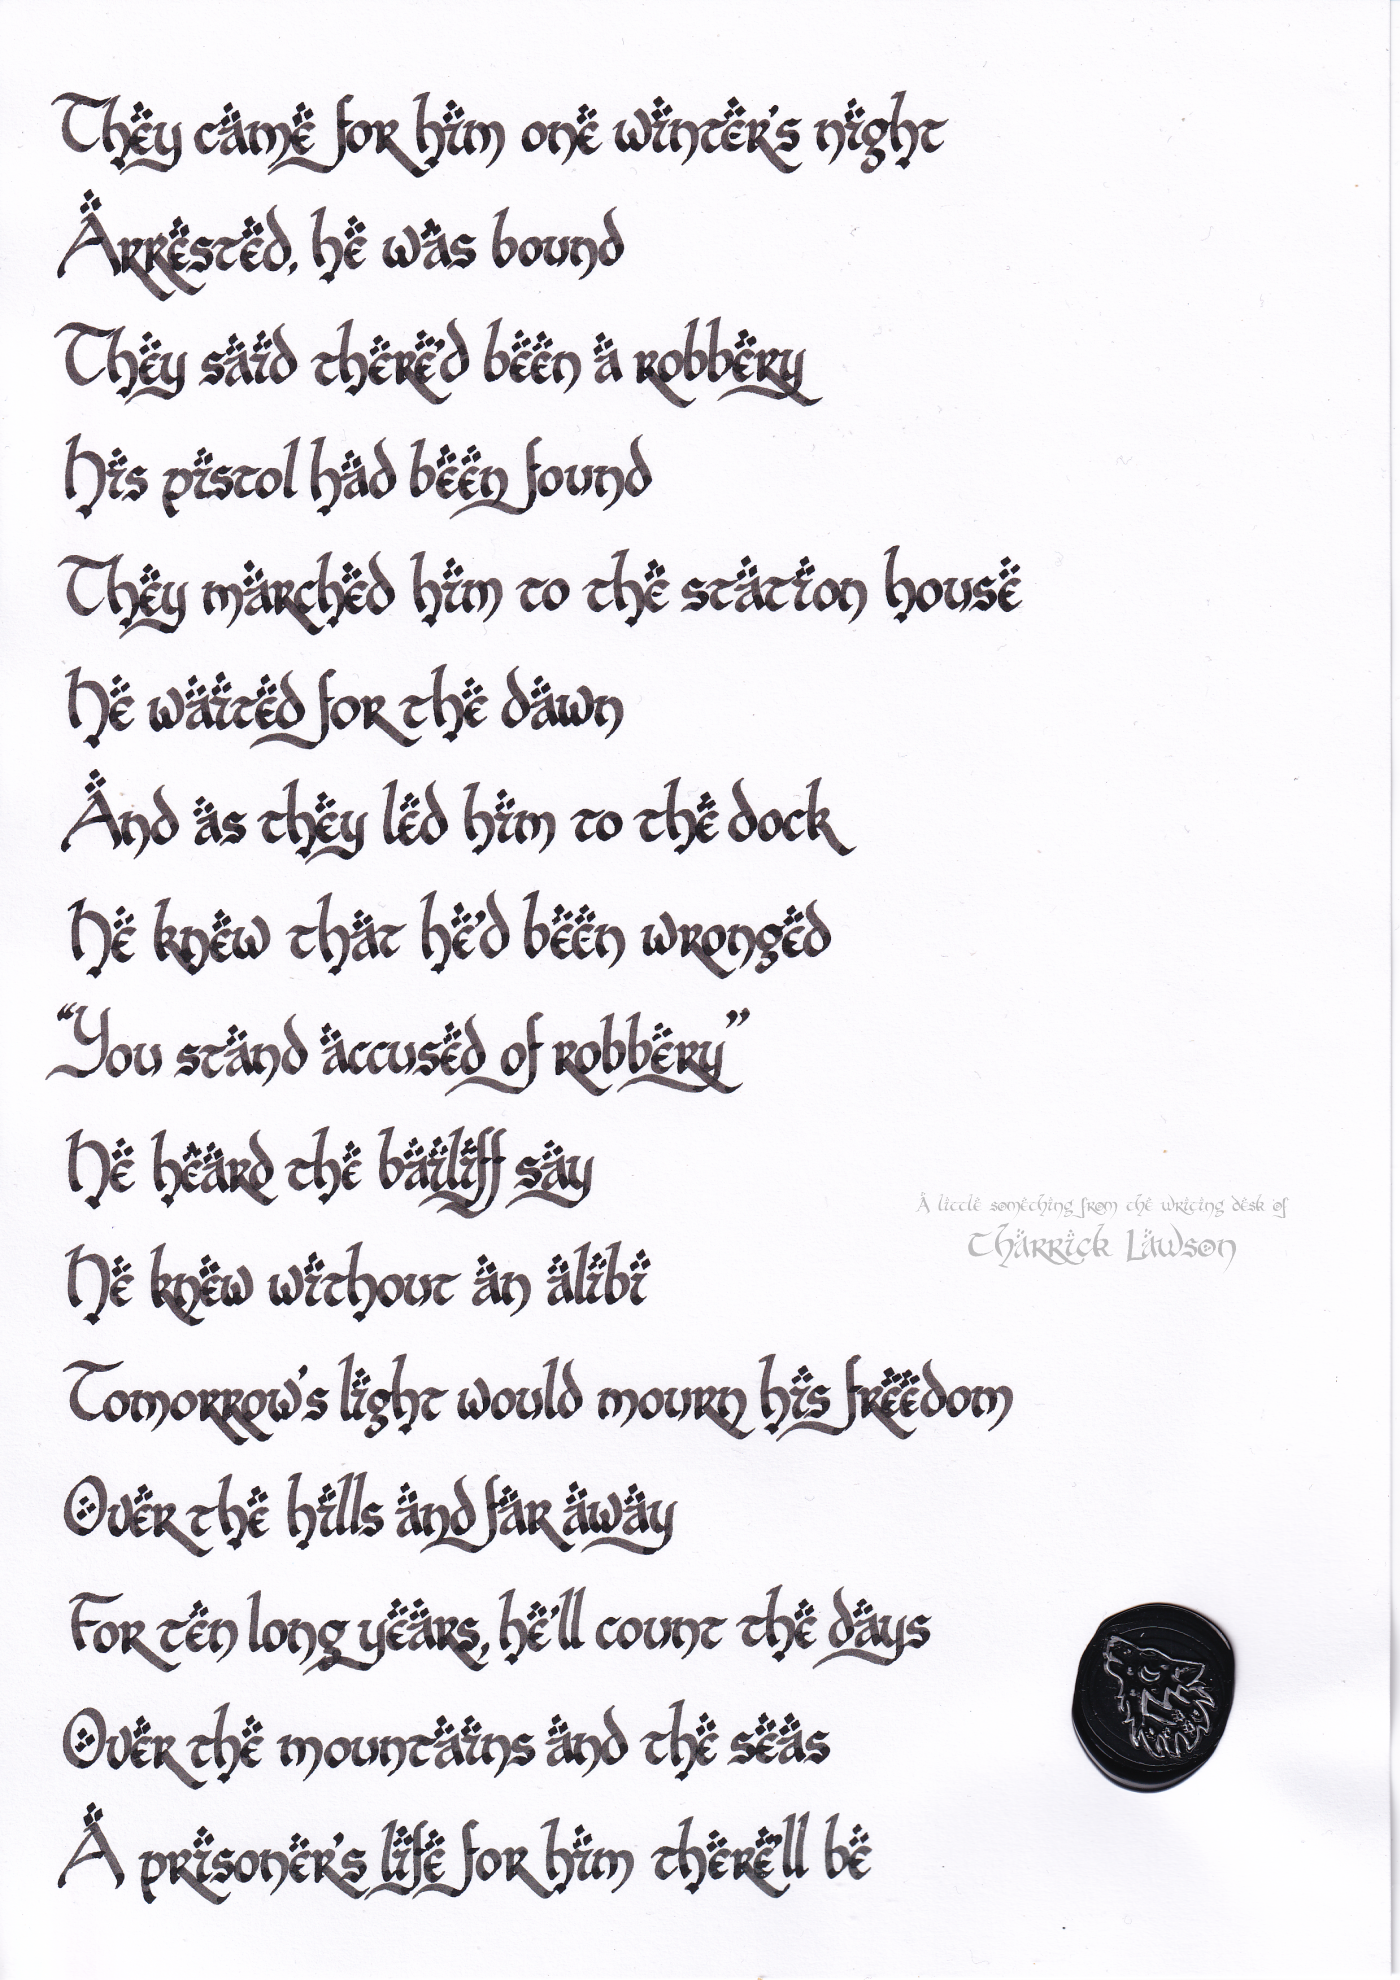 They came for him one winter's night
Arrested, he was bound
They said there'd been a robbery
His pistol had been found
They marched him to the station house
He waited for the dawn
And as they led him to the dock
He knew that he'd been wronged
“You stand accused of robbery”
He heard the bailiff say
He knew without an alibi
Tomorrow's light would mourn his freedom
Over the hills and far away
For ten long years, he'll count the days
Over the mountains and the seas
A prisoner's life for him there'll be
A little something from the writing desk of
Tharrick Lawson